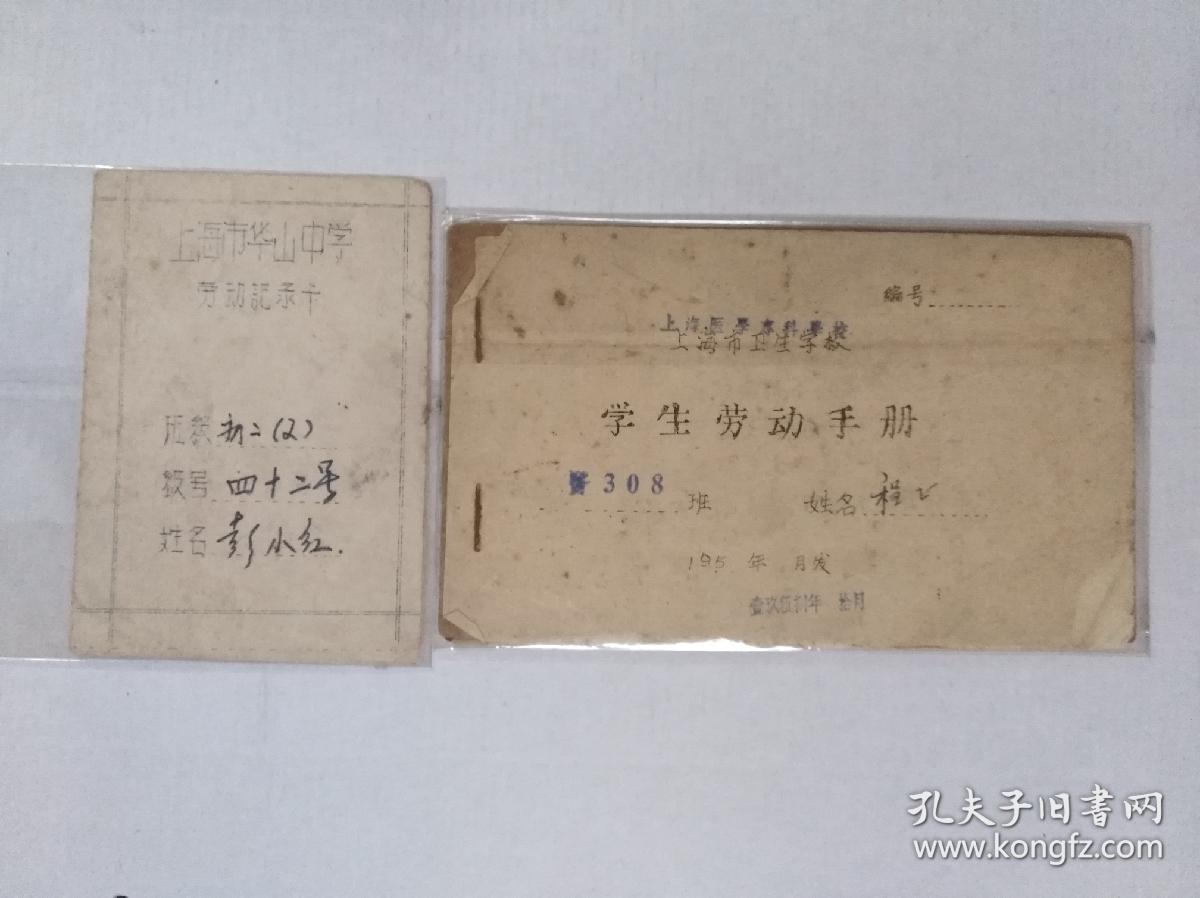 上海市华山中学
劳动記录卡
班级 初二(2)
板号 四十二号
姓名 彭小红.
编号
上海医學專科學校
上海市卫生学校
学生劳动手册
醫308班 姓名 程
195 年 月发
壹玖伍 年 拾月
孔夫子旧书网
www.kongfz.com